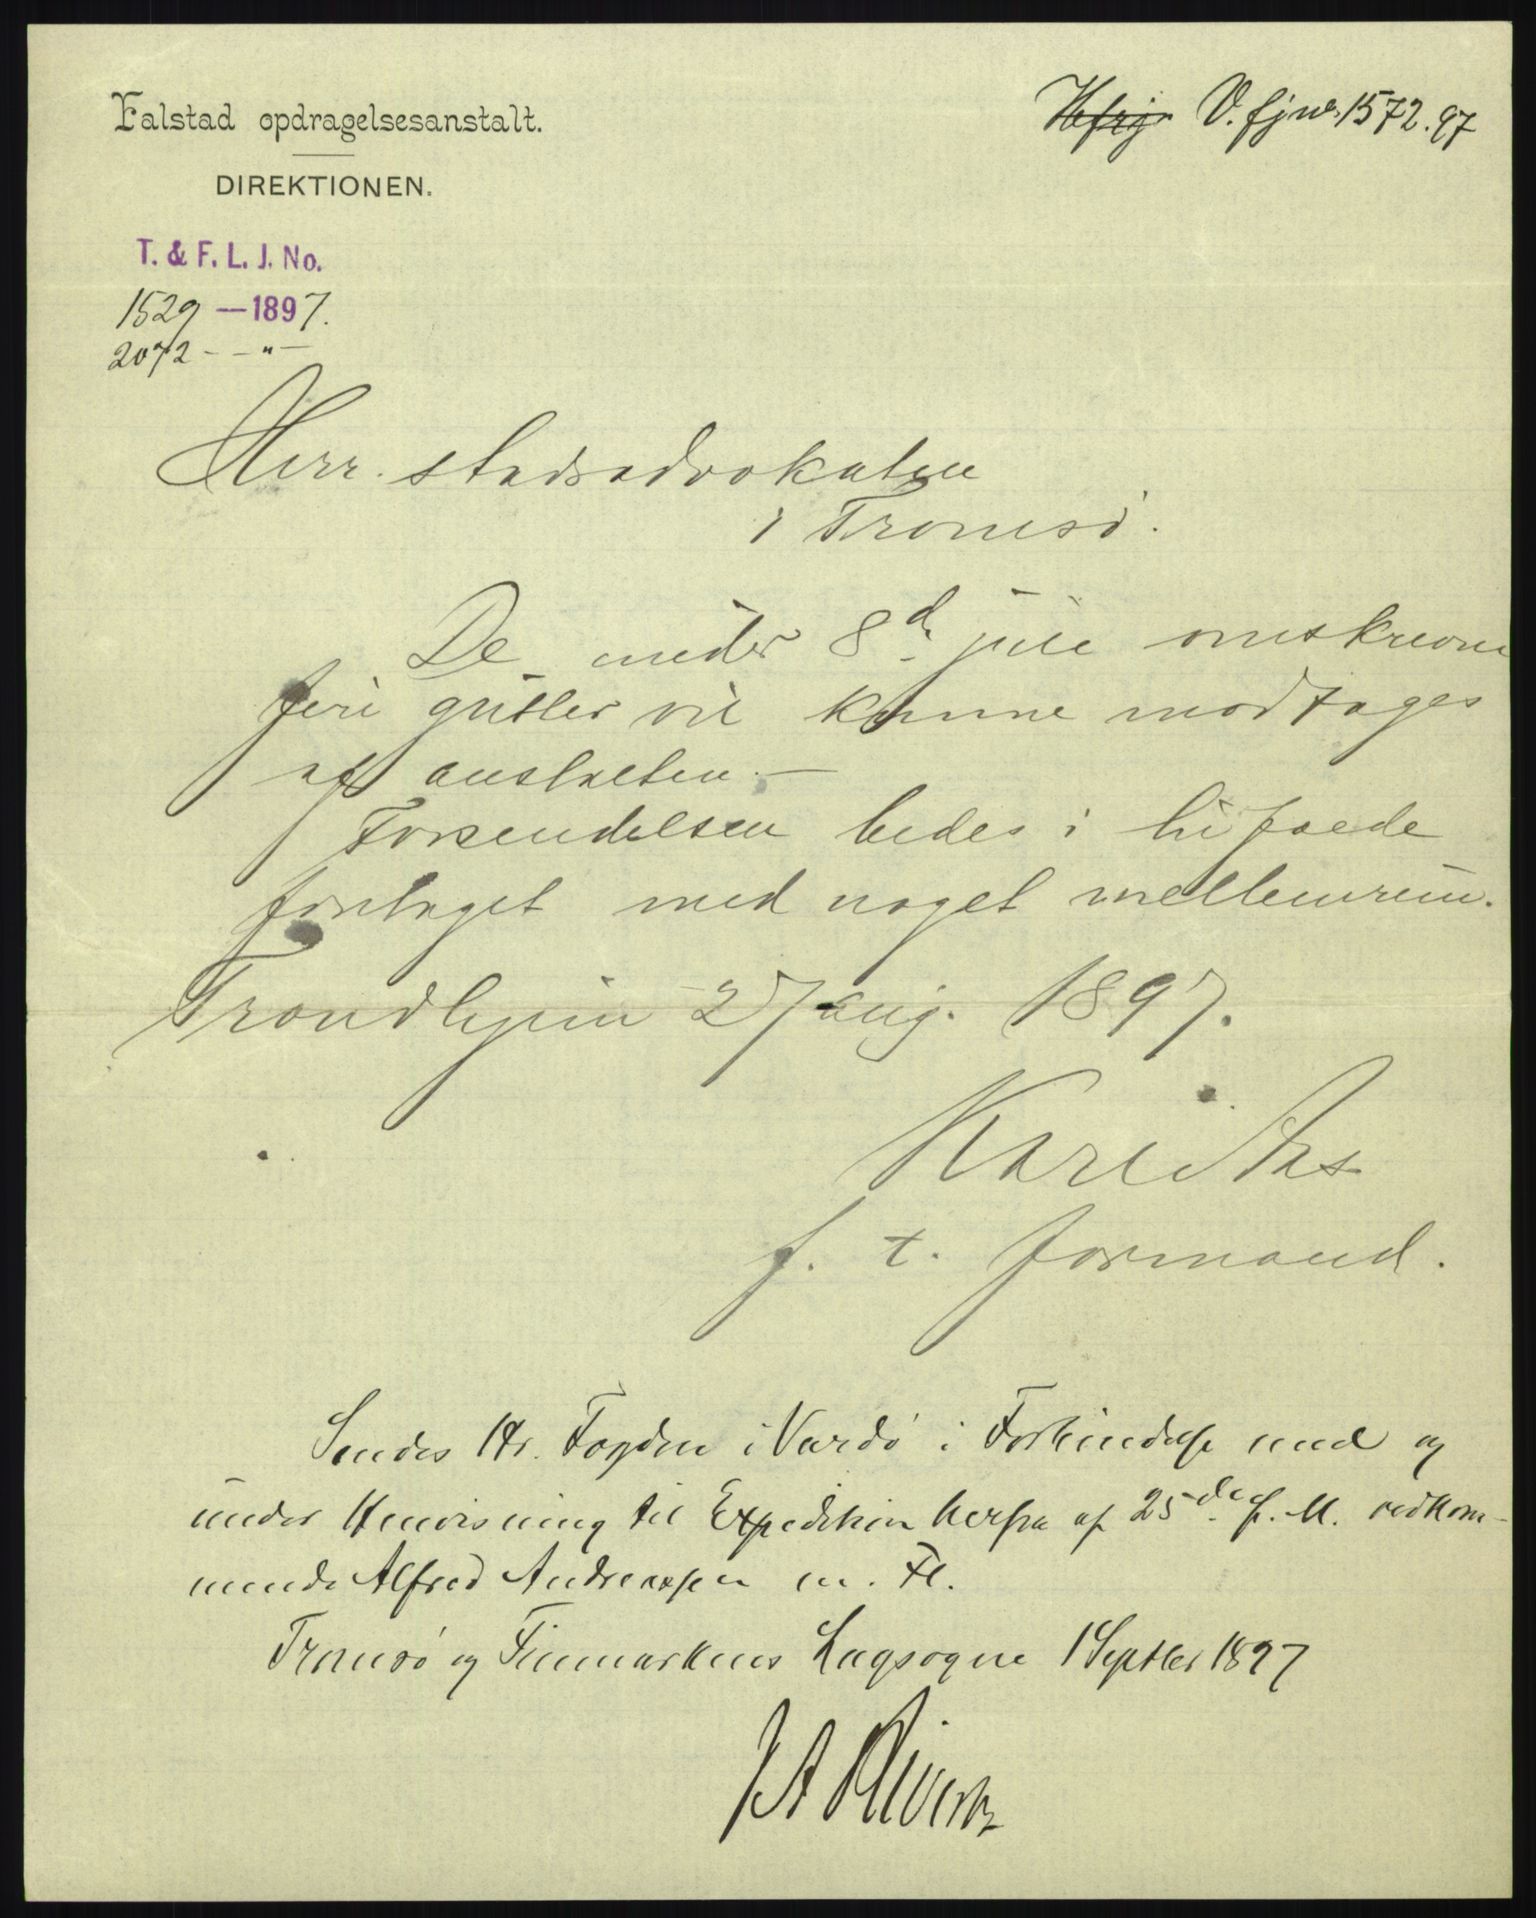 Falstad opdragelsesanstalt.
DIREKTIONEN.
V. fjno. 1572.97
T. & F. L. J. No.
1529 — 1897.
2072 - - " -
Herr stadsadvokaten
i Tromsö.
De under 8d juli omskrevne
fire gutter vil kunne modtages
af anstalten. —
Forsendelsen bedes i tilfælde
foretaget med noget mellemrum.
Trondhjem 27 aug. 1897.
Karl Aas
f. t. formand.
Sendes Hr. Fogden i Vardö i Forbindelse med og
under Henvisning til Expedition herfra af 25de f. M. vedkom-
mende Alfred Andreassen m. Fl.
Tromsö og Finmarkens Lagsogne 1 Septber 1897